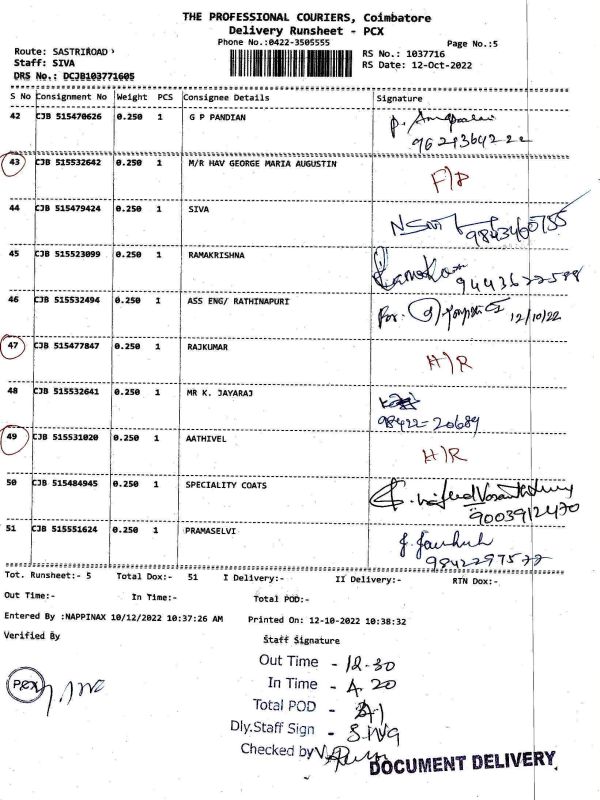 THE PROFESSIONAL COURIERS, Coimbatore
Delivery Runsheet - PCX
Phone No.:0422-3505555
Page No.:5
Route: SASTRIROAD
RS No.: 1037716
Staff: SIVA
RS Date: 12-Oct-2022
DRS No.: DCJB103771605
S No Consignment No Weight PCS Consignee Details Signature
42 CJB 515470626 0.250 1 G P PANDIAN
43 CJB 515532642 0.250 1 M/R HAV GEORGE MARIA AUGUSTIN
44 CJB 515479424 0.250 1 SIVA
9843460755
45 CJB 515523099 0.250 1 RAMAKRISHNA
46 CJB 515532494 0.250 1 ASS ENG/ RATHINAPURI For. 12/10/22
47 CJB 515477847 0.250 1 RAJKUMAR H/R
48 CJB 515532641 0.250 1 MR K. JAYARAJ
98422-20689
49 CJB 515531020 0.250 1 AATHIVEL H/R
50 CJB 515484945 0.250 1 SPECIALITY COATS
9003912470
51 CJB 515551624 0.250 1 PRAMASELVI
9842297577
Tot. Runsheet:- 5 Total Dox:- 51 I Delivery:- II Delivery:- RTN Dox:-
Out Time:- In Time:- Total POD:-
Entered By :NAPPINAX 10/12/2022 10:37:26 AM Printed On: 12-10-2022 10:38:32
Verified By Staff Signature
PCX
Out Time - 12.30
In Time - 4.20
Total POD -
Dly.Staff Sign - SIVA
Checked by
DOCUMENT DELIVERY